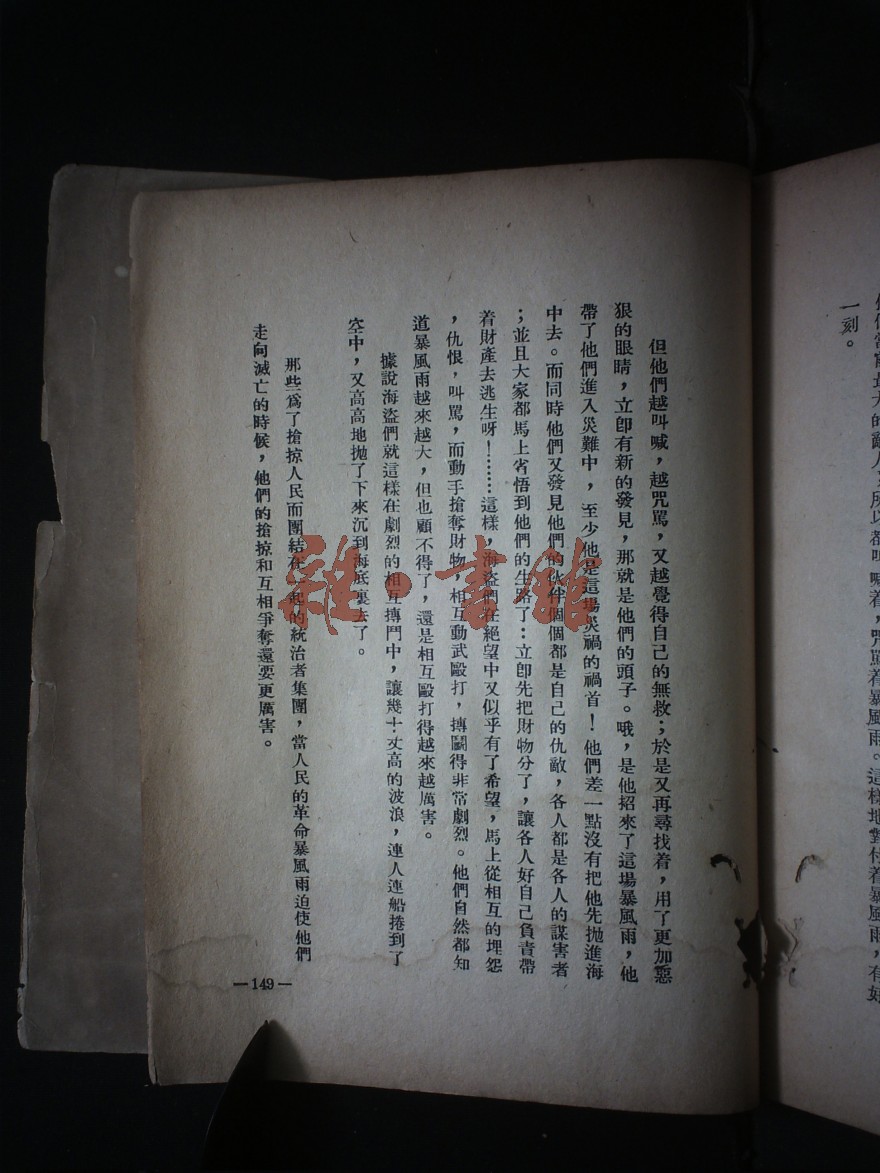 一刻。
但他們越叫喊，越咒駡，又越覺得自己的無救；於是又再尋找着，用了更加惡
狠的眼睛，立卽有新的發見，那就是他們的頭子。哦，是他招來了這場暴風雨，他
帶了他們進入災難中，至少他是這場災禍的禍首！他們差一點沒有把他先拋進海
中去。而同時他們又發見他們的伙伴個個都是自己的仇敵，各人都是各人的謀害者
；並且大家都馬上省悟到他們的生路了：立卽先把財物分了，讓各人好自己負責帶
着財產去逃生呀！……這樣，海盜們在絕望中又似乎有了希望，馬上從相互的埋怨
，仇恨，叫駡，而動手搶奪財物，相互動武毆打，摶鬭得非常劇烈。他們自然都知
道暴風雨越來越大，但也顧不得了，還是相互毆打得越來越厲害。
據說海盜們就這樣在劇烈的相互摶鬥中，讓幾十丈高的波浪，連人連船捲到了
空中，又高高地拋了下來沉到海底裏去了。
那些爲了搶掠人民而團結在一起的統治者集團，當人民的革命暴風雨迫使他們
走向滅亡的時候，他們的搶掠和互相爭奪還要更厲害。
—149—
雜·書館